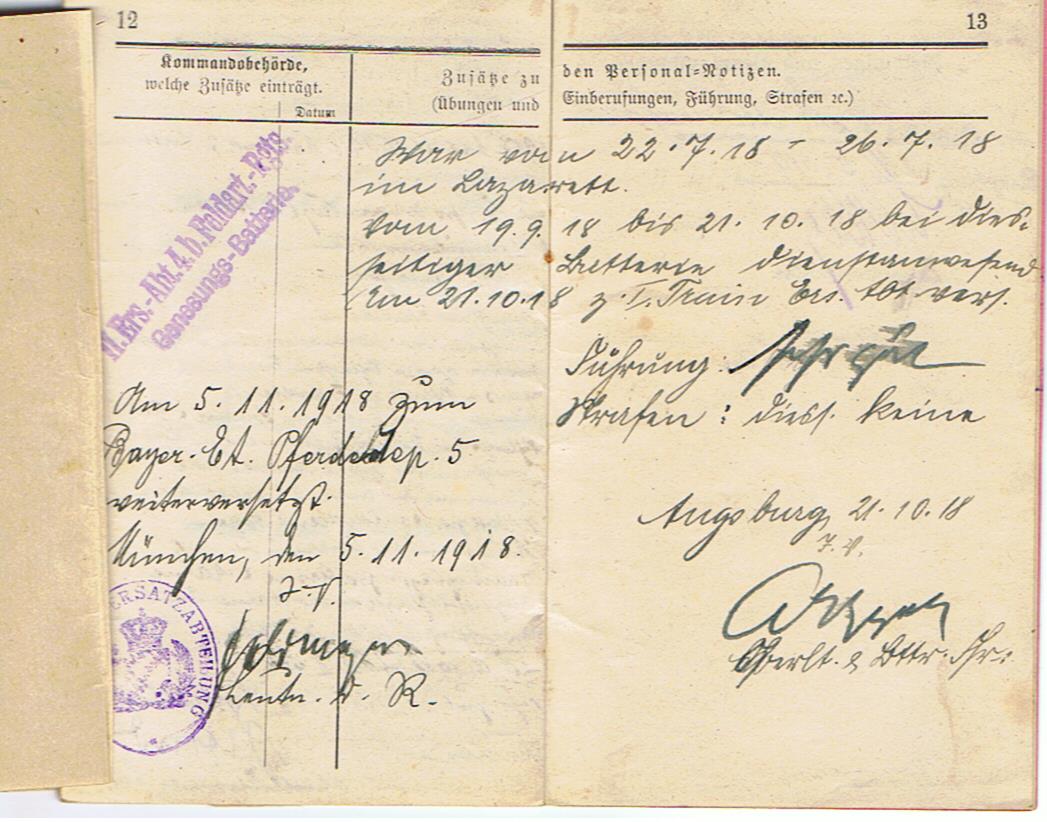 12
13
Kommandobehörde,
welche Zusätze einträgt.
Datum
Zusätze zu den Personal-Notizen.
(Übungen und Einberufungen, Führung, Strafen ꝛc.)
II. Ers.-Abt. 4. b. Feldart.-Rgts.
Genesungs-Batterie.
War vom 22.7.18 - 26.7.18
im Lazarett.
Vom 19.9.18 bis 21.10.18 bei dies-
seitiger Batterie dienstanwesend
Am 21.10.18 z. I. Train Ers. Abt. vers.
Führung: sehr gut
Strafen: diess. keine
Augsburg, 21.10.18
I.V.
Oberlt. & Bttr. Fhr.
Am 5.11.1918 zum
Bayer. Et. Pferdedep. 5
weiterversetzt.
München, den 5.11.1918.
I.V.
Leutn. d. R.
ERSATZABTEILUNG